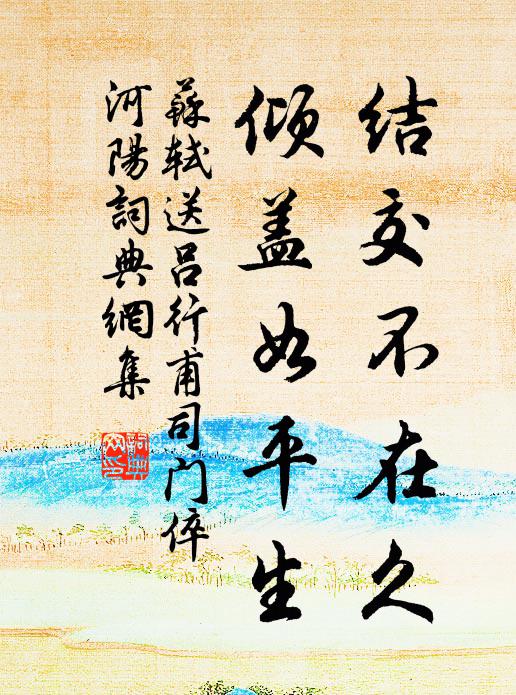 结交不在久
倾盖如平生
蘇軾送吕行甫司门倅
河陽詞典網集